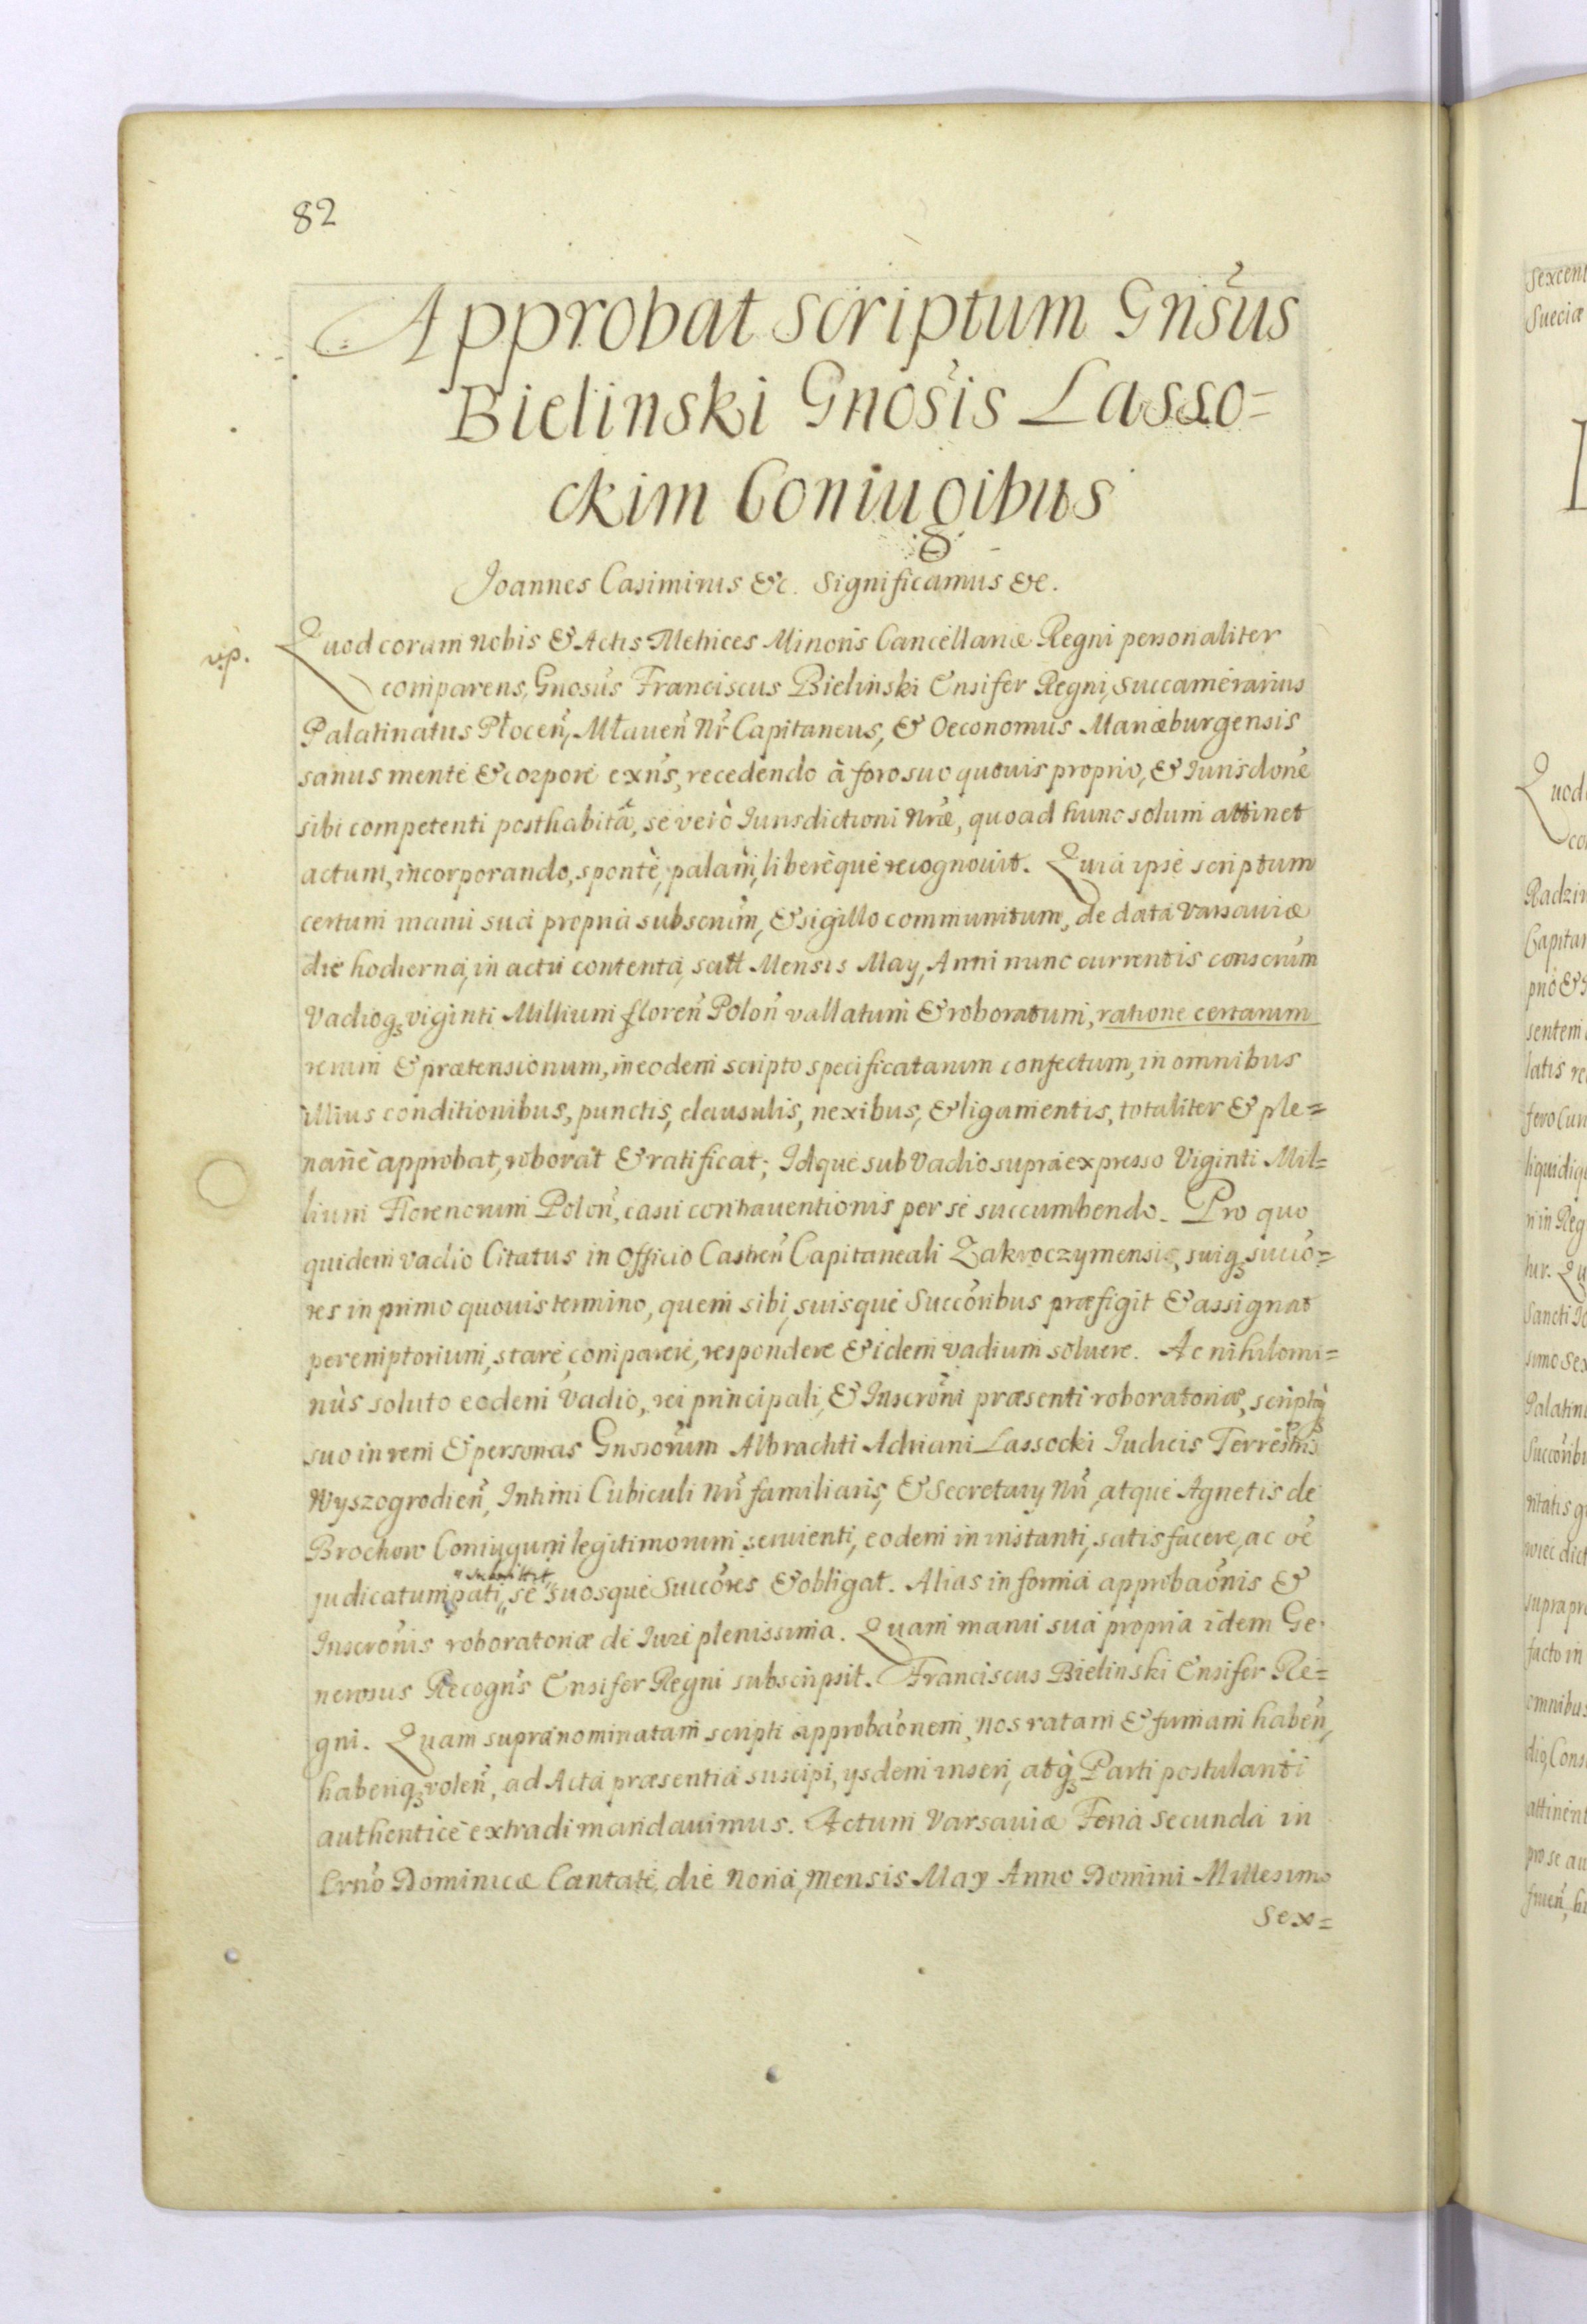 82
Approbat scriptum Gnsus
Bielinski Gnosis Lasso=
ckim Coniugibus
Joannes Casimirus &c. Significamus &c.
Quod coram nobis & Actis Metrices Minoris Cancellariæ Regni personaliter
comparens, Gnosus Franciscus Bielinski Ensifer Regni, Succamerarius
Palatinatus Płocen, Mlauen Nr Capitaneus, & Oeconomus Mariæburgensis
sanus mente & corpore exns, recedendo à foro suo quouis proprio, & Iurisdone
sibi competenti posthabitâ, se verò Iurisdictioni Nræ, quoad hunc solum attinet
actum, incorporando, spontè, palàm, liberèque recognouit. Quia ipse scriptum
certum manu sua propria subscrum, & sigillo communitum, de data Varsauiæ
die hodierna, in actu contenta, satt Mensis May, Anni nunc currentis conscrum
Vadioq viginti Millium floren Polon vallatum & roboratum, ratione certarum
rerum & prætensionum, in eodem scripto specificatarum confectum, in omnibus
illius conditionibus, punctis, clausulis, nexibus, & ligamentis, totaliter & ple=
narie approbat, roborat & ratificat; Idque sub Vadio supra expresso Viginti Mil=
lium Florenorum Polon, casu contrauentionis per se succumbendo. Pro quo
quidem vadio Citatus in Officio Castren Capitaneali Zakroczymensi, suiq succo=
res in primo quouis termino, quem sibi, suisque Succoribus præfigit & assignat
peremptorium, stare, comparere, respondere & idem vadium soluere. Ac nihilomi=
nùs soluto eodem Vadio, rei principali, & Inscroni præsenti roboratoriæ, scriptoq
suo in rem & personas Gnsorum Albrachti Adriani Lassocki Iudicis Terrestris
Wyszogrodien, Intimi Cubiculi Nri familiaris, & Secretary Nri, atque Agnetis de
Brochow Coniugum legitimorum seruienti, eodem in instanti, satisfacere, ac re
judicatum pati, se suosque Succores & obligat. Alias in forma approbaonis &
submittit
Inscronis roboratoriæ de Iure plenissima. Quam manu sua propria idem Ge
nerosus Recogns Ensifer Regni subscripsit. Franciscus Bielinski Ensifer Re=
gni. Quam supranominatam scripti approbaonem, nos ratam & firmam haben,
haberiq volen, ad Acta præsentia suscipi, ysdem inseri, atq Parti postulanti
authentice extradi mandauimus. Actum Varsauiæ Feria secunda in
Crno Dominicæ Cantate, die nona, mensis May Anno Domini Millesimo
Sex=